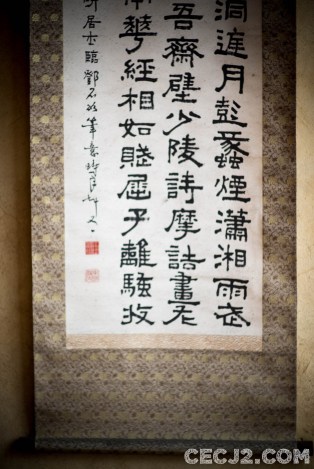 洞庭月彭蠡煙瀟湘雨武
吾齋壁少陵詩摩詰畫左
南華經相如賦屈子離騷收
居士臨鄧石如筆意
CECJ2.COM